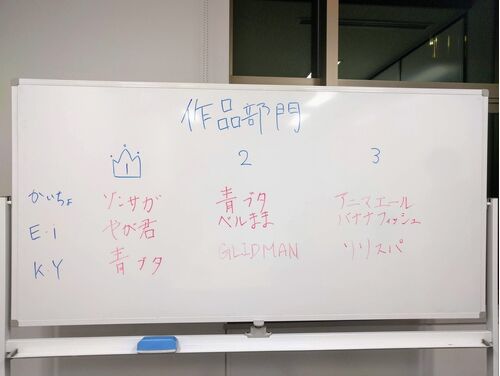 作品部門
1 2 3
かいちょ ゾンサガ 青ブタ アニマエール
E・I やが君 ベルまま バナナフィッシュ
K・Y 青ブタ GRIDMAN リリスパ